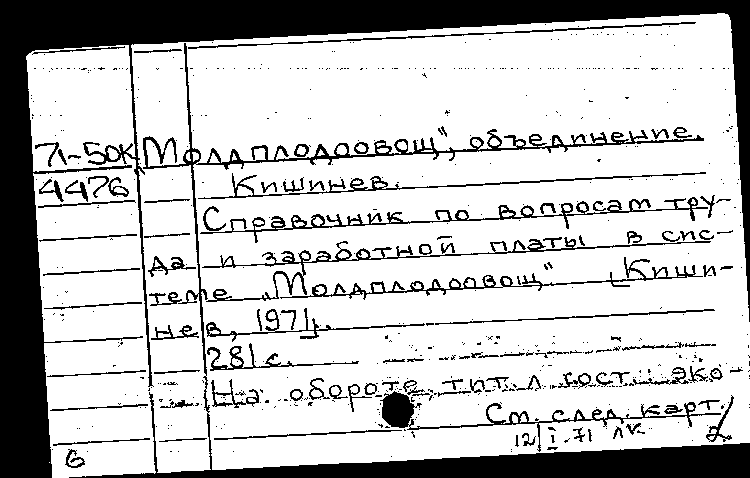 71-50к „Молдплодоовощ", объединение.
4476 Кишинев.
Справочник по вопросам тру-
да и заработной платы в сис-
теме „Молдплодоовощ" [Киши-
нев, 1971].
281 с.
На обороте тит. л сост.: эко-
См. след. карт.
12/I-71 ЛК 2
6